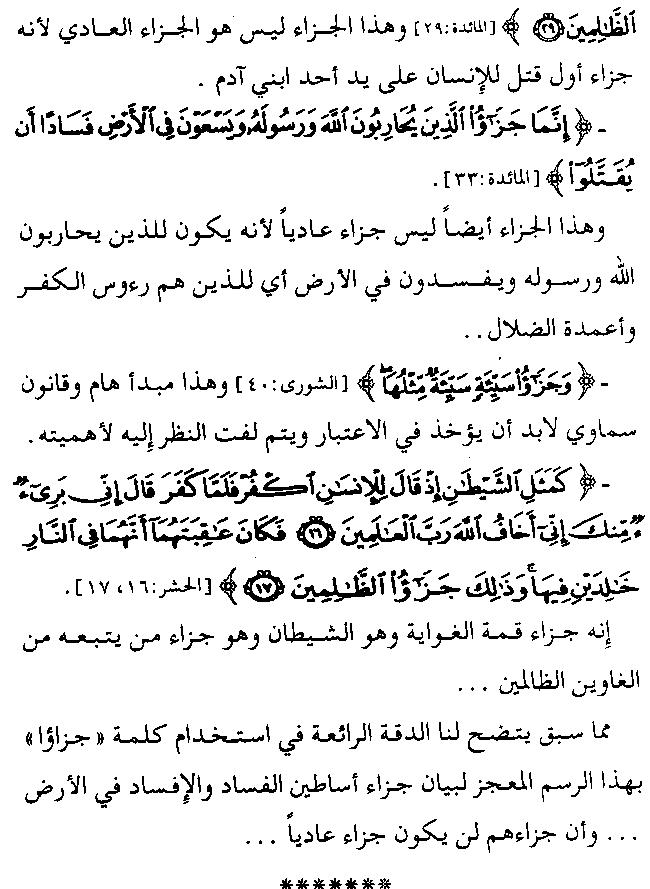 ٱلظَّٰلِمِينَ ٢٩ ﴾ [المائدة:٢٩] وهذا الجزاء ليس هو الجزاء العادي لأنه
جزاء أول قتل للإنسان على يد أحد ابني آدم .
- ﴿ إِنَّمَا جَزَٰٓؤُا۟ ٱلَّذِينَ يُحَارِبُونَ ٱللَّهَ وَرَسُولَهُۥ وَيَسْعَوْنَ فِي ٱلْأَرْضِ فَسَادًا أَن
يُقَتَّلُوٓا۟ ﴾ [المائدة:٣٣] .
وهذا الجزاء أيضاً ليس جزاء عادياً لأنه يكون للذين يحاربون
الله ورسوله ويفسدون في الأرض أي للذين هم رءوس الكفر
وأعمدة الضلال..
- ﴿ وَجَزَٰٓؤُا۟ سَيِّئَةٍ سَيِّئَةٌ مِّثْلُهَا ﴾ [الشورى:٤٠] وهذا مبدأ هام وقانون
سماوي لابد أن يؤخذ في الاعتبار ويتم لفت النظر إليه لأهميته.
- ﴿ كَمَثَلِ ٱلشَّيْطَٰنِ إِذْ قَالَ لِلْإِنسَٰنِ ٱكْفُرْ فَلَمَّا كَفَرَ قَالَ إِنِّي بَرِيٓءٌ
مِّنكَ إِنِّيٓ أَخَافُ ٱللَّهَ رَبَّ ٱلْعَٰلَمِينَ ١٦ فَكَانَ عَٰقِبَتَهُمَآ أَنَّهُمَا فِي ٱلنَّارِ
خَٰلِدَيْنِ فِيهَا ۚ وَذَٰلِكَ جَزَٰٓؤُا۟ ٱلظَّٰلِمِينَ ١٧ ﴾ [الحشر:١٦، ١٧] .
إنه جزاء قمة الغواية وهو الشيطان وهو جزاء من يتبعه من
الغاوين الظالمين ...
مما سبق يتضح لنا الدقة الرائعة في استخدام كلمة « جزاؤا »
بهذا الرسم المعجز لبيان جزاء أساطين الفساد والإفساد في الأرض
... وأن جزاءهم لن يكون جزاء عادياً ...
*******